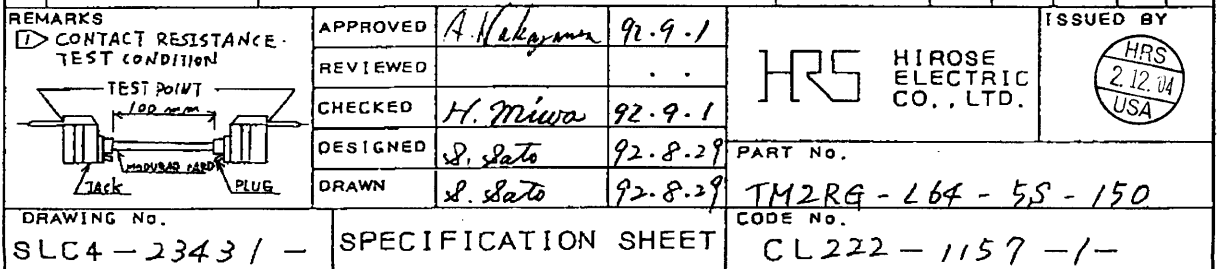 REMARKS
1 CONTACT RESISTANCE.
TEST CONDITION
TEST POINT
100 mm
JACK
PLUG
APPROVED A. Nakayama 92.9.1
REVIEWED . .
CHECKED H. Miwa 92.9.1
DESIGNED S. Sato 92.8.29
DRAWN S. Sato 92.8.29
HRS
HIROSE
ELECTRIC
CO., LTD.
ISSUED BY
HRS
2.12.04
USA
PART No.
TM2RG-L64-5S-150
DRAWING No.
SLC4-23431-
SPECIFICATION SHEET
CODE No.
CL222-1157-1-